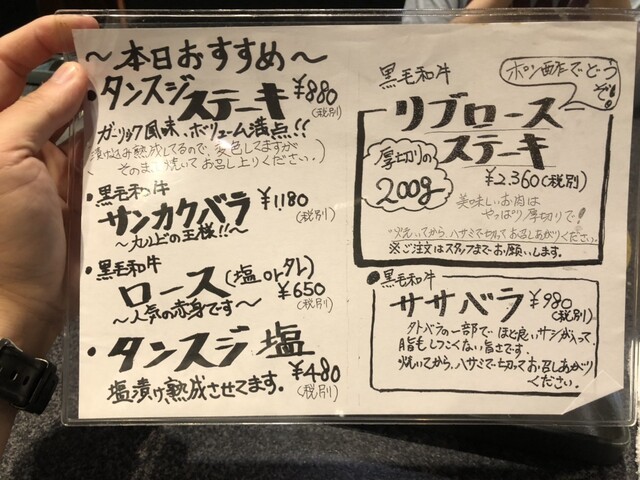 〜本日おすすめ〜
・タンスジステーキ ¥880
(税別)
ガーリック風味、ボリューム満点!!
(漬け込み熟成してるので、変色してますが
そのまま焼いてお召し上りください。)
・黒毛和牛
サンカクバラ ¥1180
(税別)
〜カルビの王様!!〜
・黒毛和牛
ロース(塩orタレ)
¥650
(税別)
〜人気の赤身です〜
・タンスジ塩
¥480
(税別)
塩漬け熟成させてます。
黒毛和牛
ポン酢でどうぞ!
リブロース
ステーキ
厚切りの
200g
¥2,360(税別)
美味しいお肉は
やっぱり厚切りで!
焼いてから、ハサミで切ってお召しあがりください。
※ご注文はスタッフまでお願いします。
●黒毛和牛
ササバラ ¥980
(税別)
外バラの一部で、ほど良いサシが入って、
脂もしつこくない旨さです。
焼いてから、ハサミで切ってお召しあがり
ください。